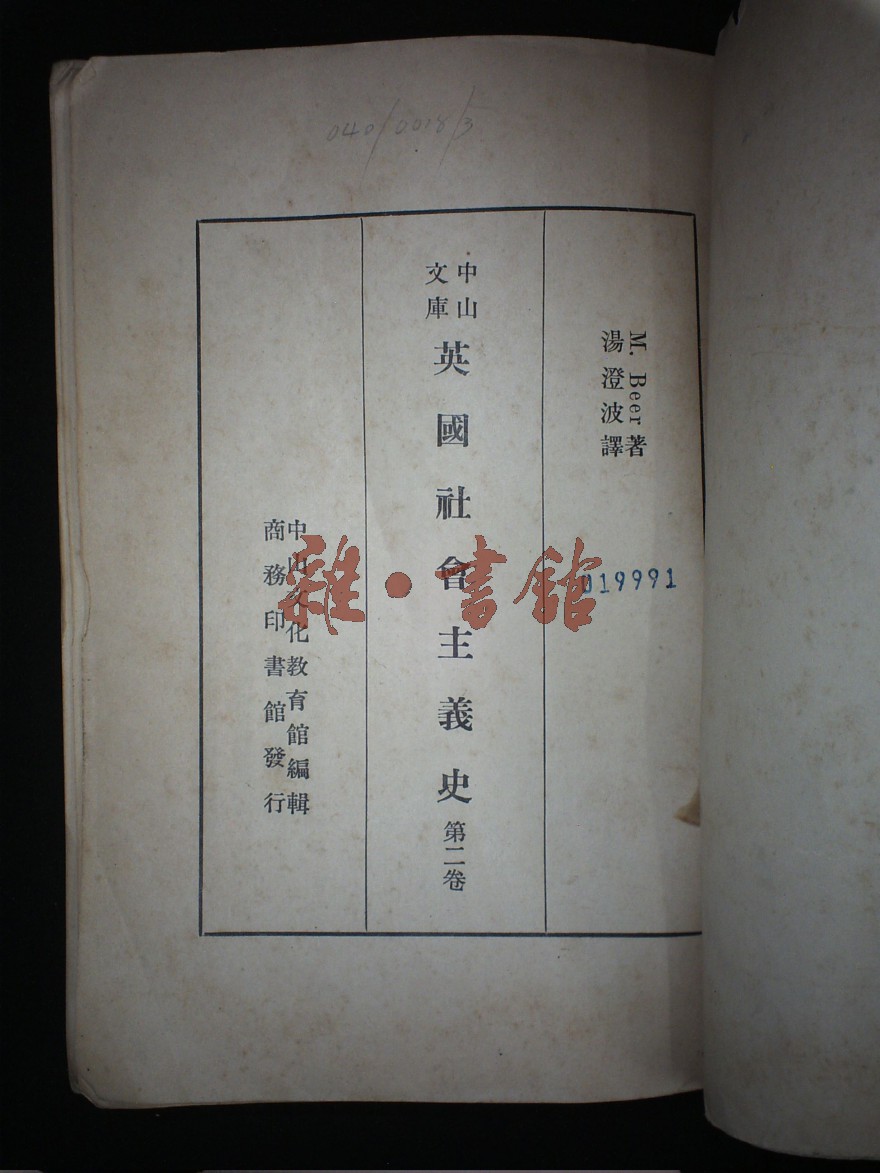 040/0018/3
M. Beer著
湯澄波譯
中山
文庫
英國社會主義史 第二卷
中山文化教育館編輯
商務印書館發行
019991
雜·書館